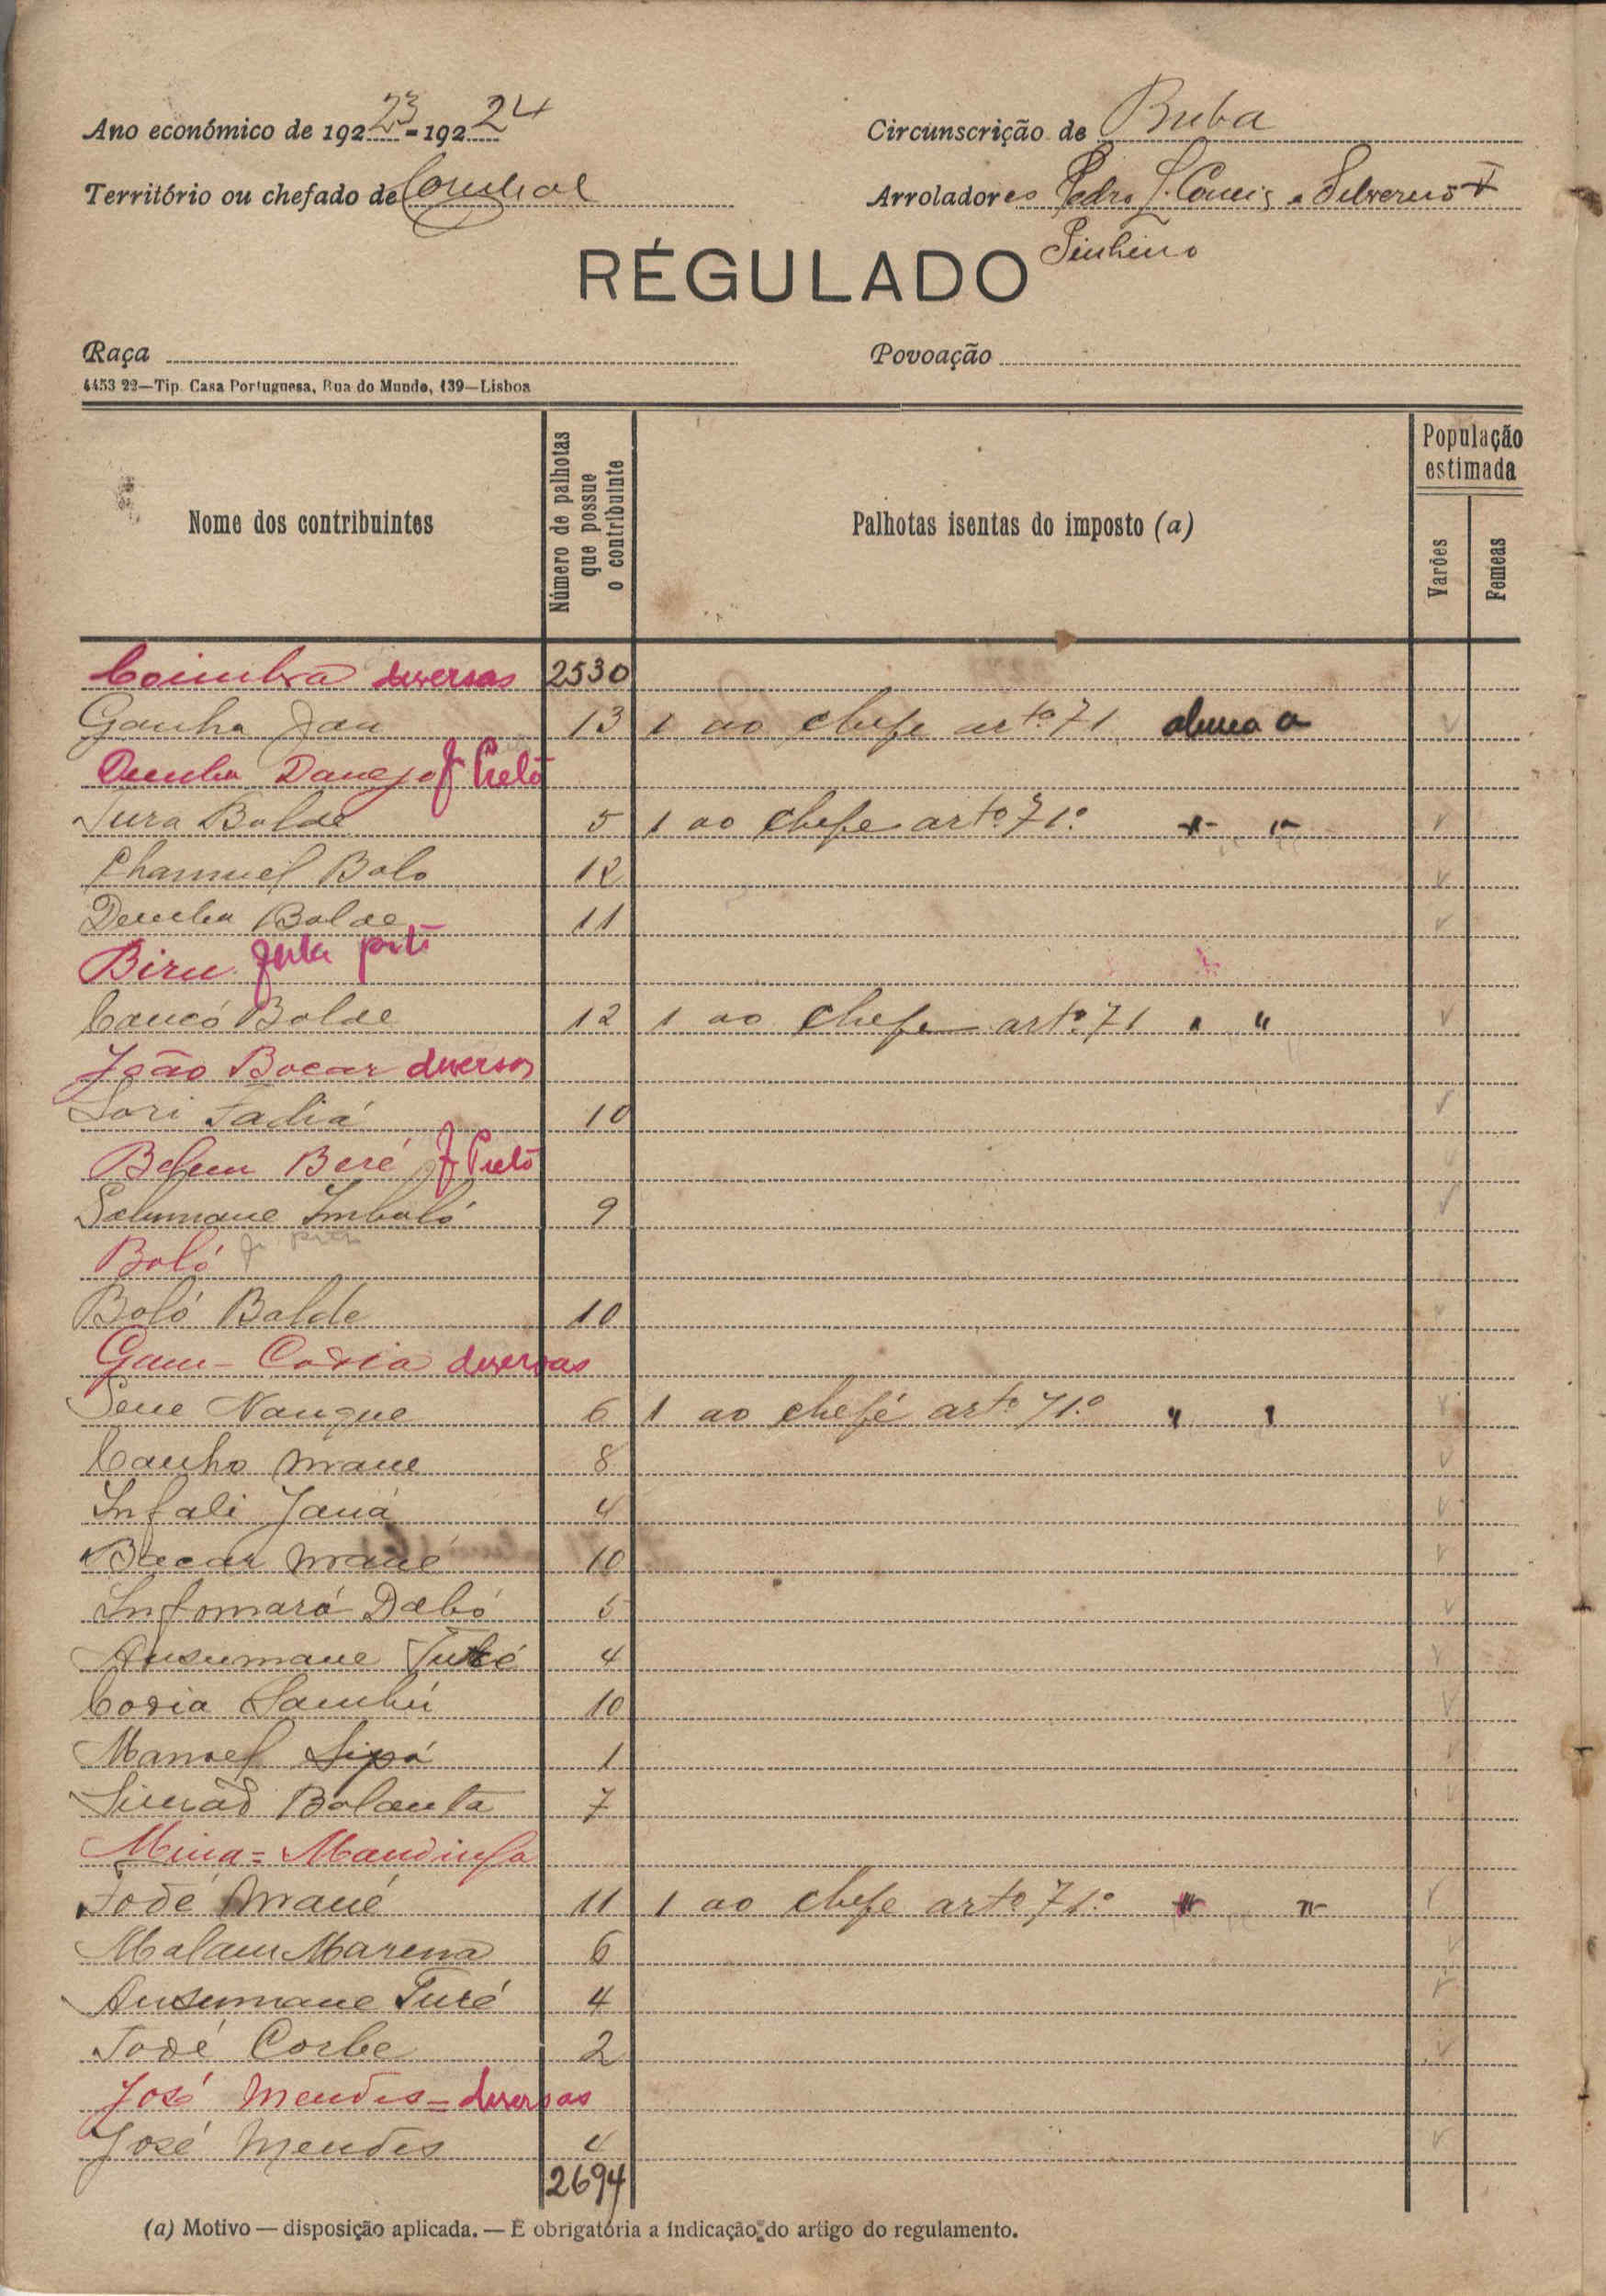 Ano económico de 1923-1924
Circunscrição de Buba
Território ou chefado de Corubal
Arroladores Pedro Silverino
Pinheiro
RÉGULADO
Raça
Povoação
4453 22—Tip. Casa Portuguesa, Rua do Mundo, 139—Lisboa
Nome dos contribuintes
Número de palhotas que possue o contribuinte
Palhotas isentas do imposto (a)
População estimada
Varões
Femeas
Coimbra diversas 2530
Ganha Jau 13 1 ao chefe artº 71 alinea a
Demba Danejo J. Preto
Tura Balde 5 1 ao chefe artº 71º " "
Balo 12
Demba Balde 11
Biru
Cancó Balde 12 1 ao chefe artº 71 " "
João Bocar diversos
Sori Fadiá 10
Belem Beré J Preto
Selumane Imbaló 9
Boló
Boló Balde 10
Gam-Codia diversas
Sene Nanque 6 1 ao chefe artº 71º " "
Cauho Mane 8
Infali Janá 4
Bacar Mané 10
Infomará Dabó 5
Ansumane Turé 4
Codia Sambú 10
Manoel Sipá 1
Simão Balanta 7
Mina=Mandinga
Fodé Mané 11 1 ao chefe artº 71º " "
Malam Marena 6
Ansumane Turé 4
Fodé Corbe 2
José Mendes=diversas
José Mendes 4
2694
(a) Motivo — disposição aplicada. — É obrigatória a indicação do artigo do regulamento.